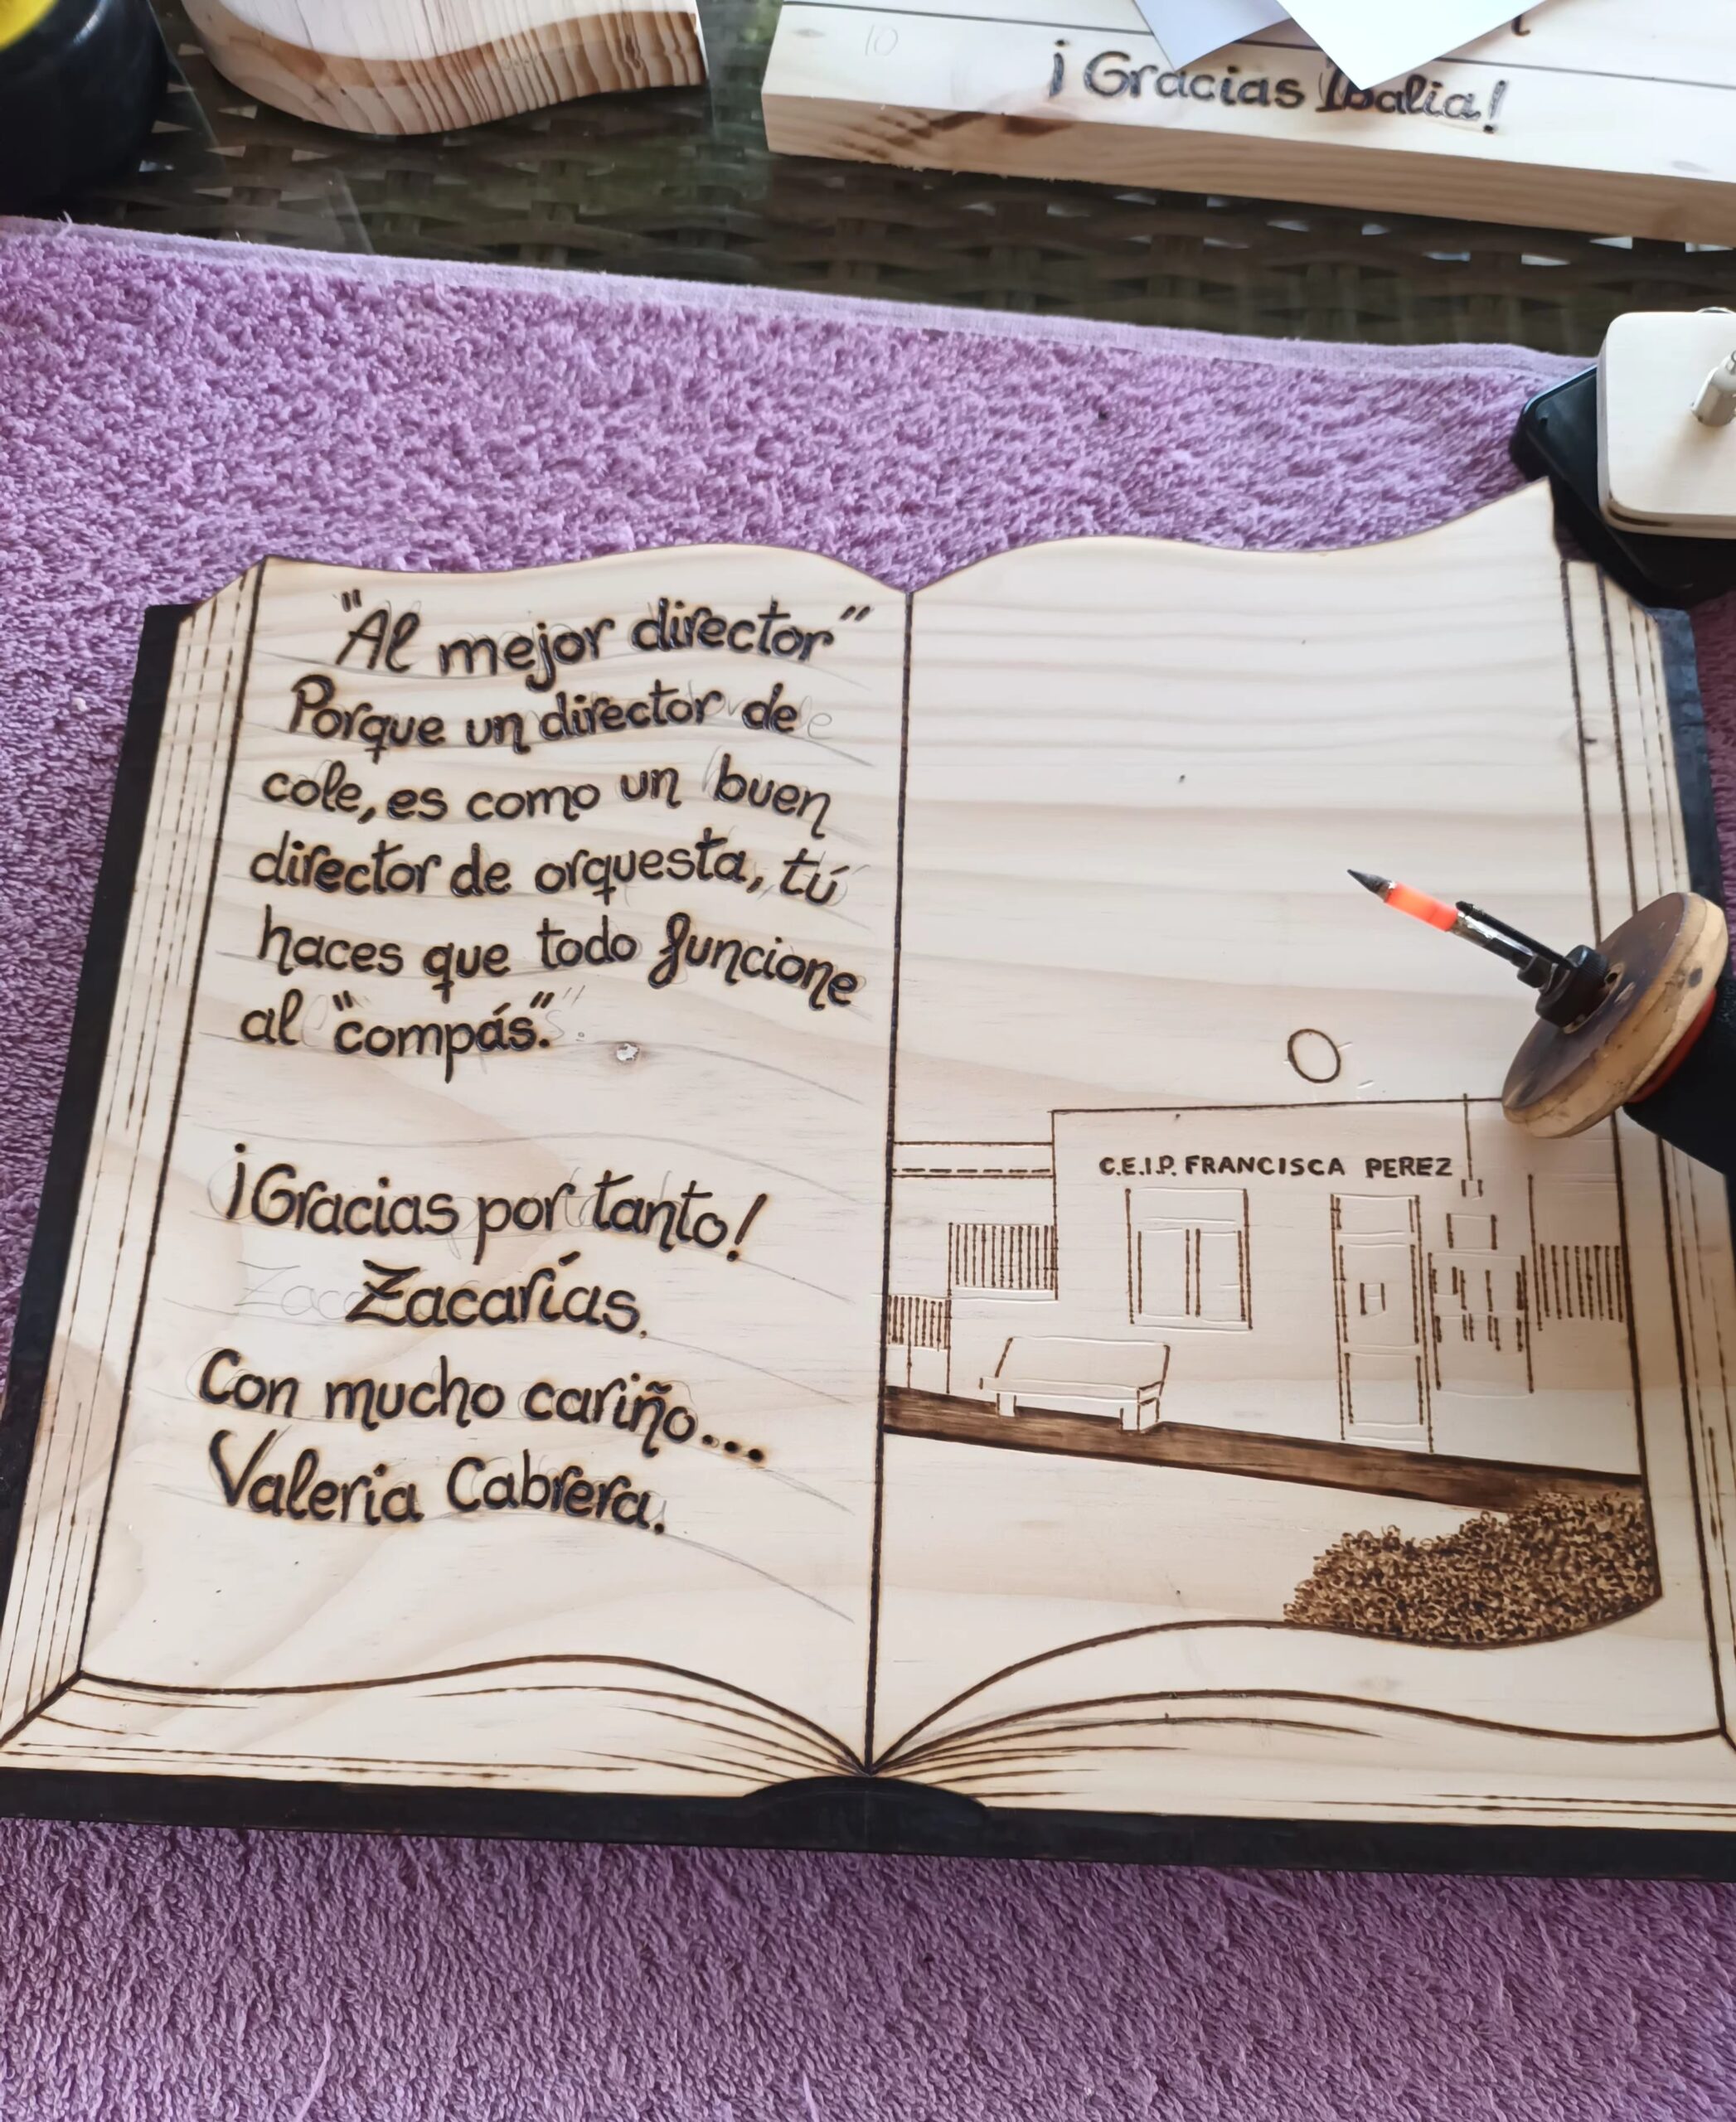 10
¡Gracias Idalia!
"Al mejor director"
Porque un director de
cole, es como un buen
director de orquesta, tú
haces que todo funcione
al "compás".
¡Gracias por tanto!
Zacarías.
Con mucho cariño...
Valeria Cabrera.
C.E.I.P. FRANCISCA PEREZ